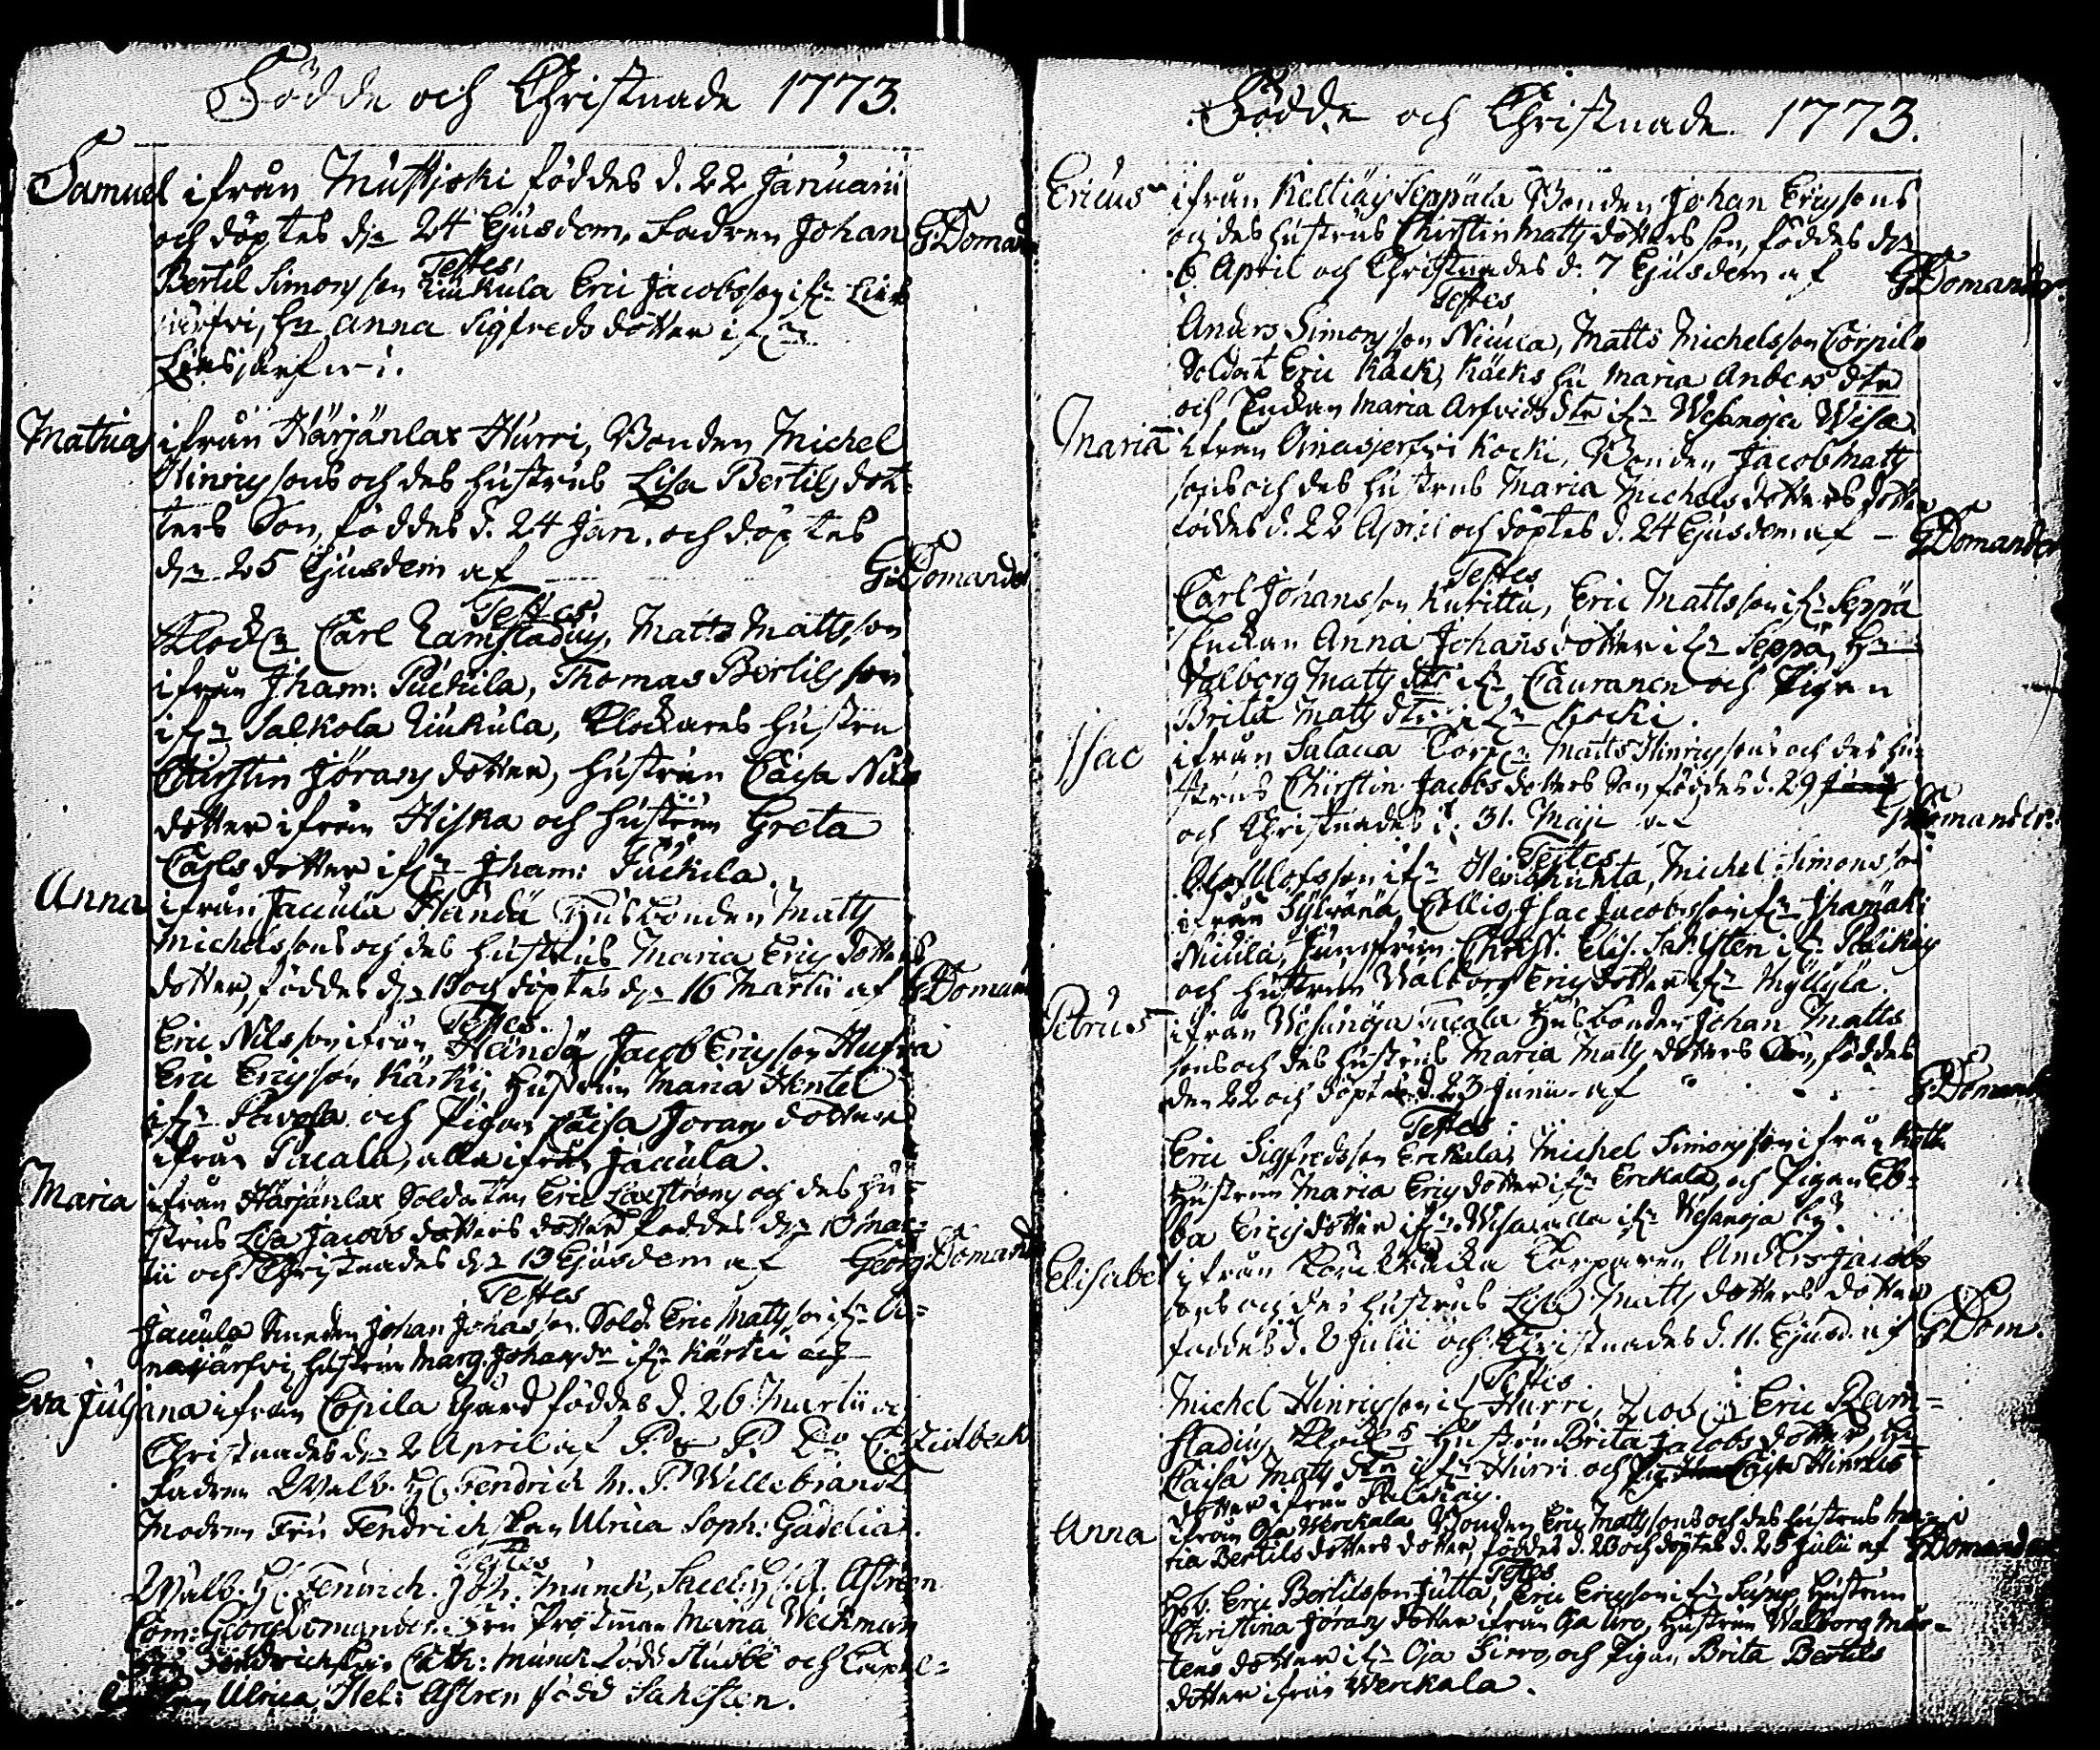 Födde och Christnade 1773.
Samuel ifrån Mustjoki föddes d. 22 Januarii
och döptes dn 24 Ejusdem, Fadren Johan GDoman
Testes
Bertil Simonsson Liukula Eric Jacobsson ifn
järfvi, Hu Anna Sigfreds dotter ifn
Mathias ifrån Härjänlax Hurri, Bonden Michel
Hinrichsons och des hustrus Lisa Bertils dot-
ters Son, föddes d. 24 Jan. och döptes
dn 25 Ejusdem af G:Domander
Testes
Klock. Carl Ramstadius, Matts Mattsson
ifrån Jham: Puckila, Thomas Bertilsson
ifn Salkola Liukula, Klockares hustru
Chirstin Jörans dotter, hustrun Caisa Nils
dotter ifrån Hiska och hustrun Greta
Carls dotter ifn Jham: Puckila.
Anna ifrån Jaccula Händä Husbonden Matts
Michelssons och des hustrus Maria Erics dotters
dotter, föddes dn 15 och döptes dn 16 Martii af GDoman
Testes.
Eric Nilsson ifrån Händä Jacob Ericsson
Eric Ericsson Kärki, Hustrun Maria Hentel
ifn och Pigan Caisa Jorans dotter
ifrån Pacala, alla ifrån Jaccula.
Maria ifrån Härjänlax Soldaten Eric Laxströms och des hu-
strus Lisa Jacobs dotters dotter foddes dn 10 Mar-
tii och Christnades dn 13 Ejusdem af Georg Domand
Testes
Jaccula Smeden Johan Johansson. Sold. Eric Mattsson ifn Ai-
najärfvi, hustrun Marg. Johans dr ifn Kärki
Eva Juliana ifrån Copila Gård föddes d. 26 Martii
Christnades dn 2 April af P. & P. Do C.
Fadren Walb. H. Fendrich M. P. Willebrandt
Modren Fru Fendrichskan Ulrica Soph: Gadelia.
Testes
Walb. H. Fendrich. Joh. Munck, A. Astreen
Com: Georg Domander. Fru Prostinnan Maria Weckman
Fendrichskan Cath: Munck född Stubbe och
Ulrica Hel: Astren född Sahlsten.
Födde och Christnade 1773.
Ericus ifrån Keltiäis Seppälä Bonden Johan Ericssons
och des hustrus Chirstin Matts dotters son, föddes dn
6 April och Christnades d. 7 Ejusdem af GDomander
Testes
Anders Simonsson Nicuca, Matts Michelsson Corpila
Soldat Eric Käck, Käcks Hu Maria Anders dtr
och Enckan Maria Arfvids dtr ifn Wesanoja Wisa.
Maria ifrån Ainasjerfvi Kocki, Bonden Jacob Matts
sons och des hustrus Maria Michels dotters dotter
föddes d. 22 April och döptes d. 24 Ejusdem af GDomander
Testes
Carl Johansson Kurittu, Eric Mattsson ifn Seppä
Enckan Anna Johans dotter ifn Seppä, Hu
Valborg Matts dtr ifn Cauranen och Pigan
Brita Matts dtr ifn Kocki.
Isac ifrån Salacca Torp. Matts Hinrichsons och des hu-
strus Chirstin Jacobs dotters Son föddes d. 29
och Christnades d. 31. Maji af GDomander.
Testes
Olof Olofsson ifn, Michel Simonsson
ifrån Sylvänä Collis, Isac Jacobsson ifn Jhamäki
Nicula, Jungfrun Christ: Elis. Sahlsten ifn
och hustrun Valborg Erics dotter ifn Myllylä.
Petrus ifrån Wesanoja Pacala Husbonden Johan Matts
sons och des hustrus Maria Matts dotters Son, föddes
den 22 och döptes d. 23 Junii af G:Domand
Testes
Eric Sigfredsson Erckala, Michel Simonsson ifrån
Hustrun Maria Erics dotter ifn Erckala, och Pigan Eb-
ba Erics dotter ifn Wisa alla ifn Wesanoja by.
Elisabet ifrån Torparen Anders Jacobs
sons och des hustrus Lisa Matts dotters dotter
föddes d. 8 Julii och Christnades d. 11. Ejusd. af GDom.
Testes
Michel Hinrichson ifn Hurri, Eric Ram-
stadius, Klock. Hustru Brita Jacobs dotter, Hu
Caisa Matts dtr ifn Hurri och Caisa Hinrics
dotter ifrån
Anna ifrån Oja Werckala Bonden Eric Mattssons och des hustrus Ma-
ria Bertils dotters dotter, föddes d. 23 och döptes d. 25 Julii af GDomander
Testes
Hsb. Eric Bertilsson Jutta, Eric Ericsson ifn, Hustrun
Christina Jörans dotter ifrån Oja Uro, Hustrun Walborg Mår-
tens dotter ifn Oja Sirro, och Pigan Brita Bertils
dotter ifrån Werckala.